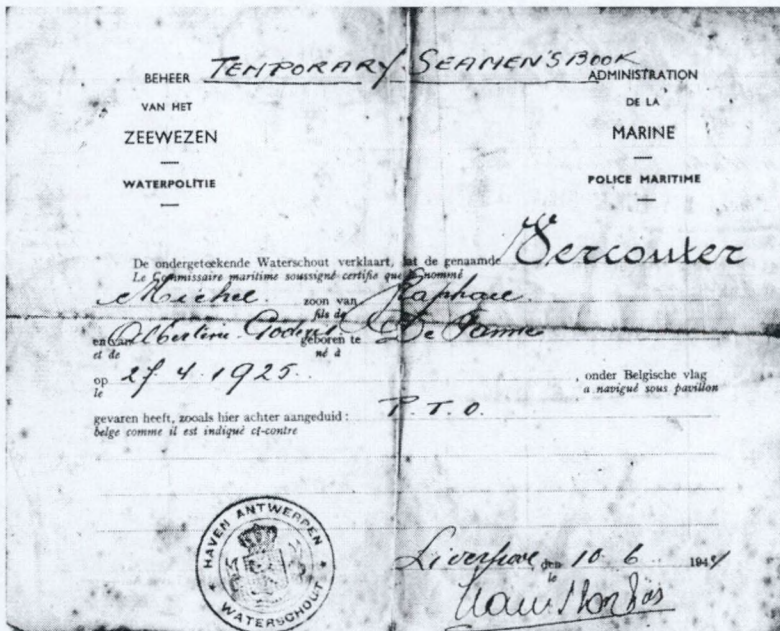 TEMPORARY SEAMEN'S BOOK
BEHEER
VAN HET
ZEEWEZEN
WATERPOLITIE
ADMINISTRATION
DE LA
MARINE
POLICE MARITIME
De ondergeteekende Waterschout verklaart, dat de genaamde Vercouter
Le Commissaire maritime soussigné certifie que le nommé
Michel zoon van Raphaël
fils de
en van Albertine geboren te De Panne
et de né à
op 27. 4. 1925. , onder Belgische vlag
le a navigué sous pavillon
gevaren heeft, zooals hier achter aangeduid : P.T.O.
belge comme il est indiqué ci-contre
HAVEN ANTWERPEN
WATERSCHOUT
Liverpool den 10. 6. 194
le